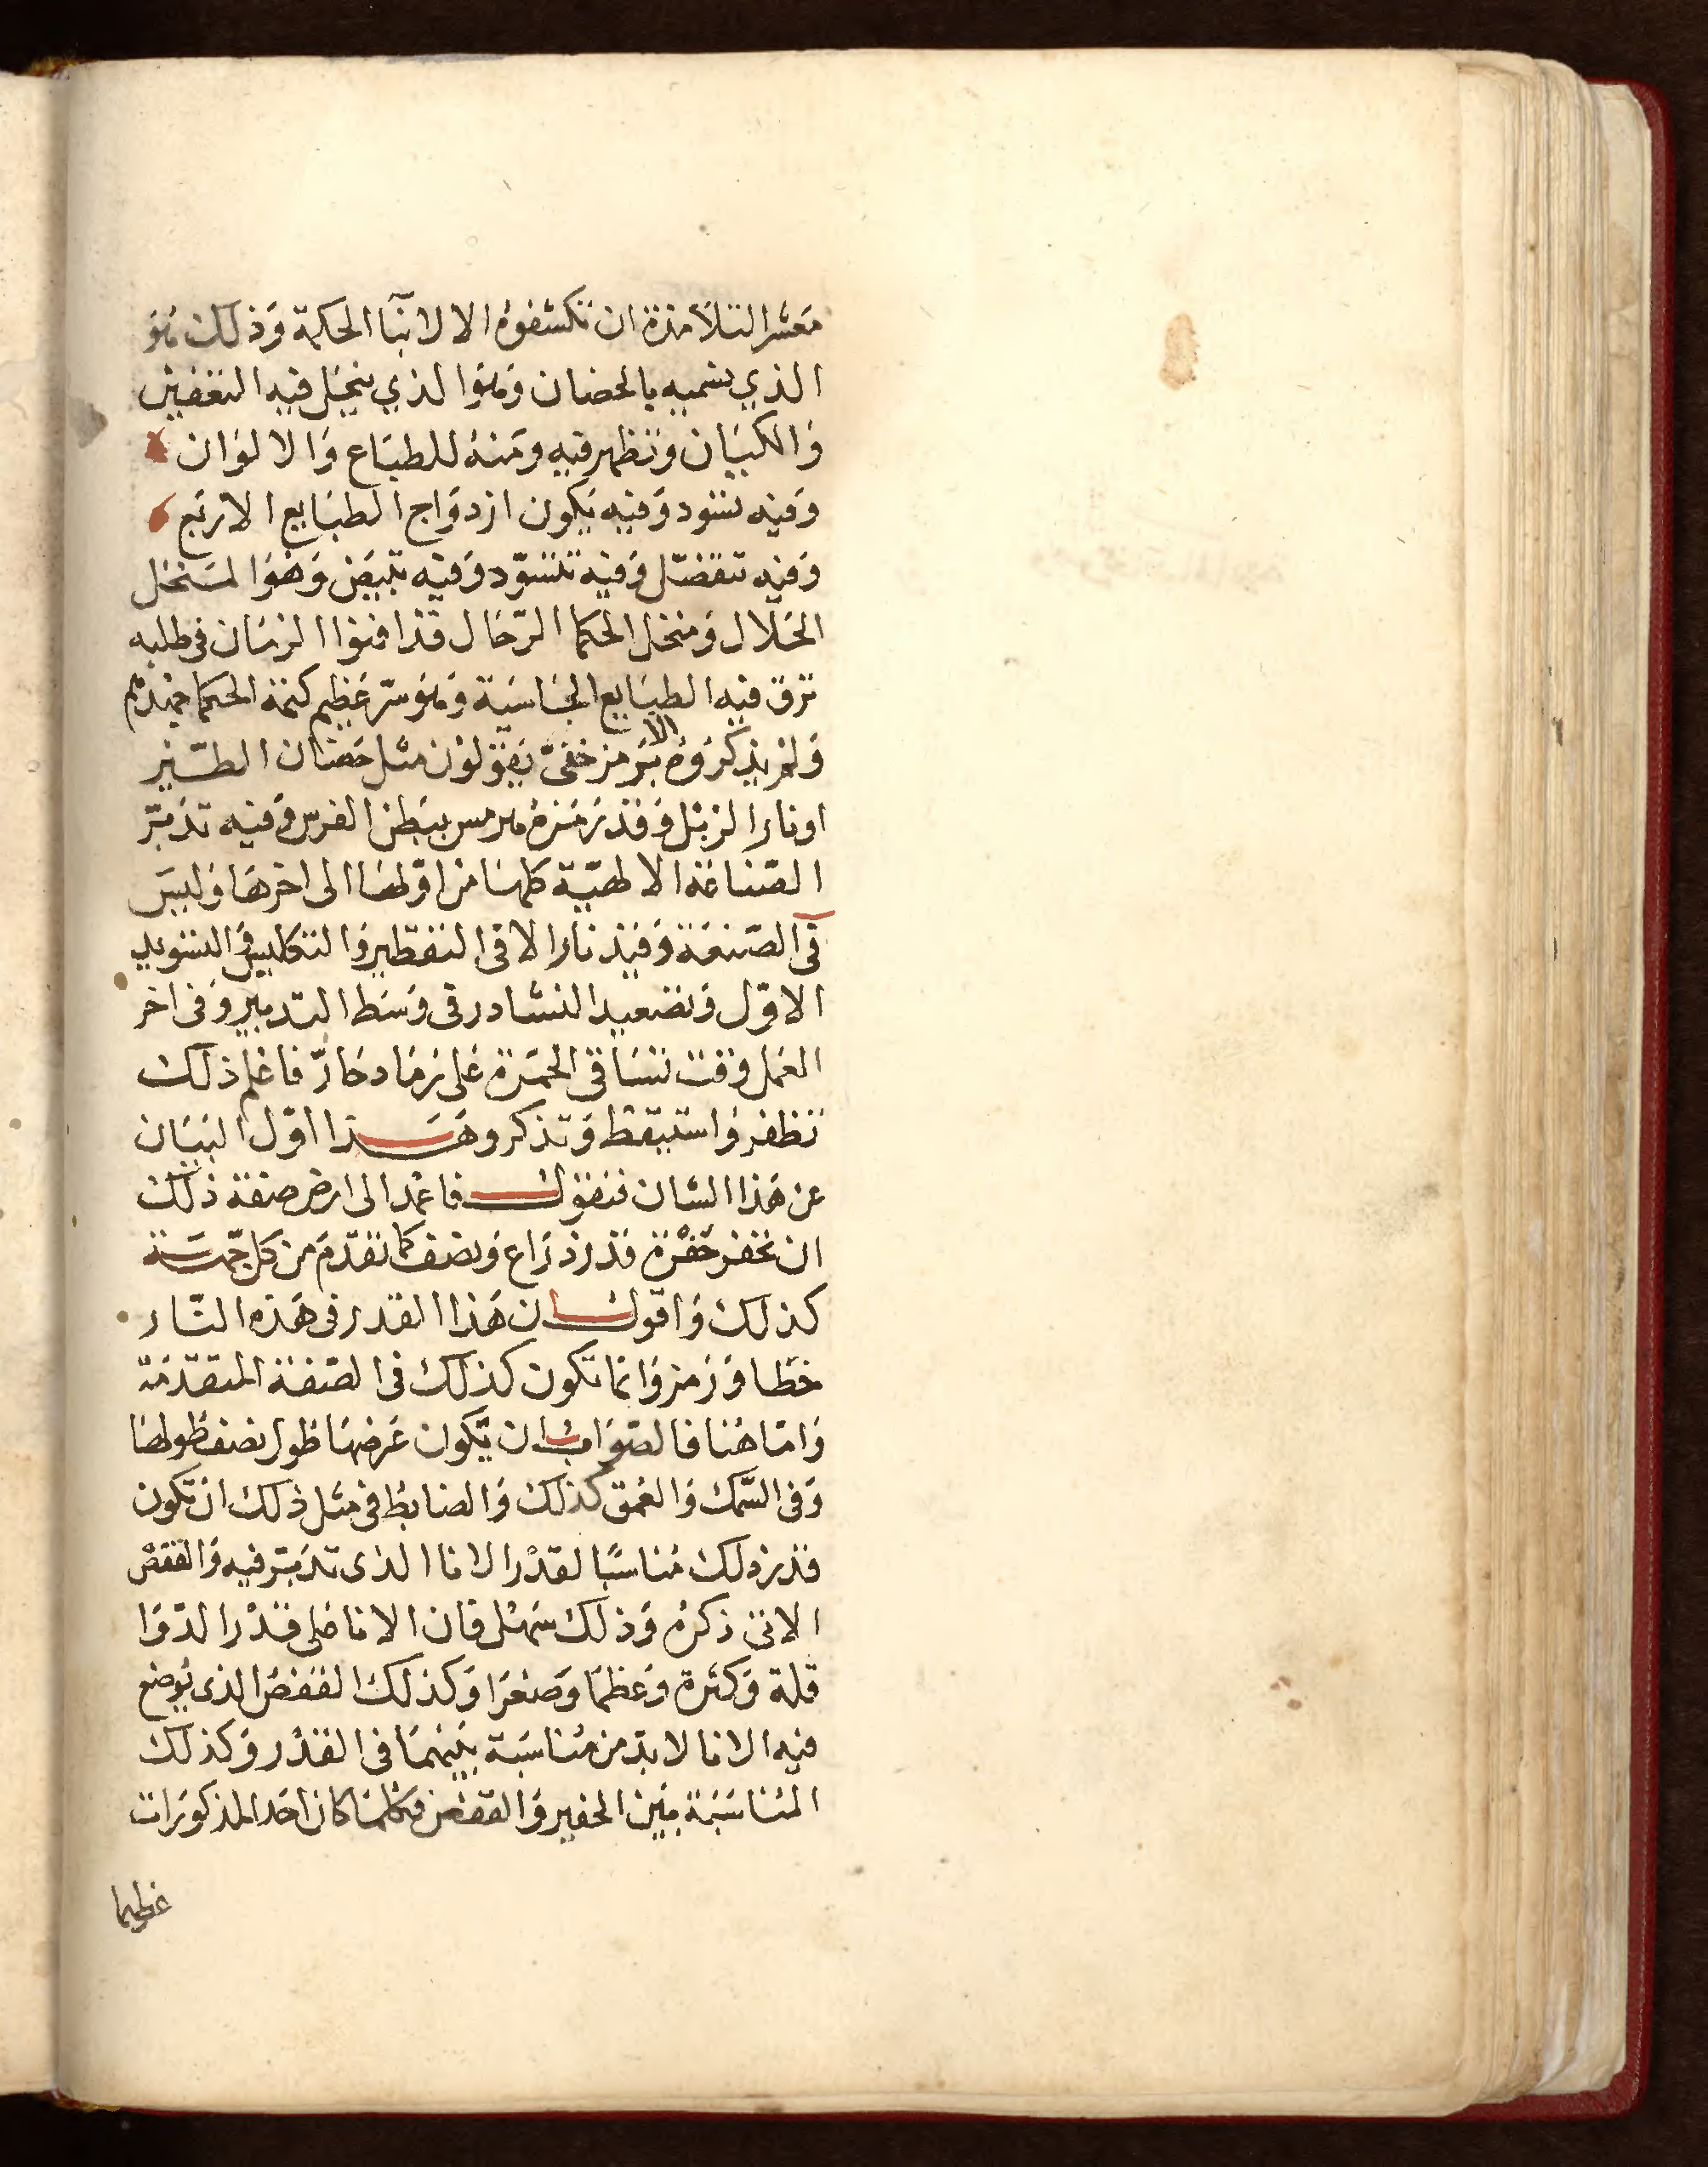 معشر التلامذة ان تكشفوه الا لابنآ الحكمة وذلك هو
الذي يسميه بالحضان وهو الذي ينحل فيه التعفين
والكيان وتظهر فيه ومنه للطباع والالوان
وفيه تسود وفيه يكون ازدواج الطبايع الاربع
وفيه تتفصّل وفيه تتسوّد وفيه تبيض وهو المنخل
الحلال ومنخل الحكما الرجال قد افنوا الزمان في طلبه
ترق فيه الطبايع الجاسية وهو سرّ عظيم كتمة الحكما جهدهم
ولم يذكروه الا برمز خفيّ يقولون مثل حضان الطّير
او نار الزبل وقد رمزه هرمس ببطن الفرس وفيه تدبّر
الصّناعة الالهيّة كلها من اوّلها الى اخرها وليس
في الصّنعة وقيد نار الا في التقطير والتكليس والتسويد
الاوّل وتصعيد النشادر في وسط التدبير وفي اخر
العمل وقت تتساقى الخمرة على رماد حارّ فاعلم ذلك
تظفر واستيقظ وتذكر وهذا اوّل البيان
عن هذا الشان فنقول فاعمد الى ارض صفة ذلك
ان تحفر حفرة قدر ذراع ونصف كما تقدّم من كل جهة
كذلك واقول ان هذا القدر في هذه النّار
خطا ورمز وانما تكون كذلك في الصّفة المتقدّمة
وامّا هنا فالصواب ان يّكون عرضها طول نصف طولها
وفي السّمك والعمق كذلك والضابط في مثل ذلك ان تكون
قدر ذلك مناسبًا لقدر الانا الذى تدبّر فيه والقفص
الاتى ذكره وذلك سهل فان الانا على قدر الدّوا
قلة وكثرة وعظما وصغرا وكذلك القفص الذى يوضع
فيه الانا لا بدّ من مناسبة بينهما في القدر وكذلك
المناسبة بين الحفير والقفص فكلما كان احد المذكورات
عظيما